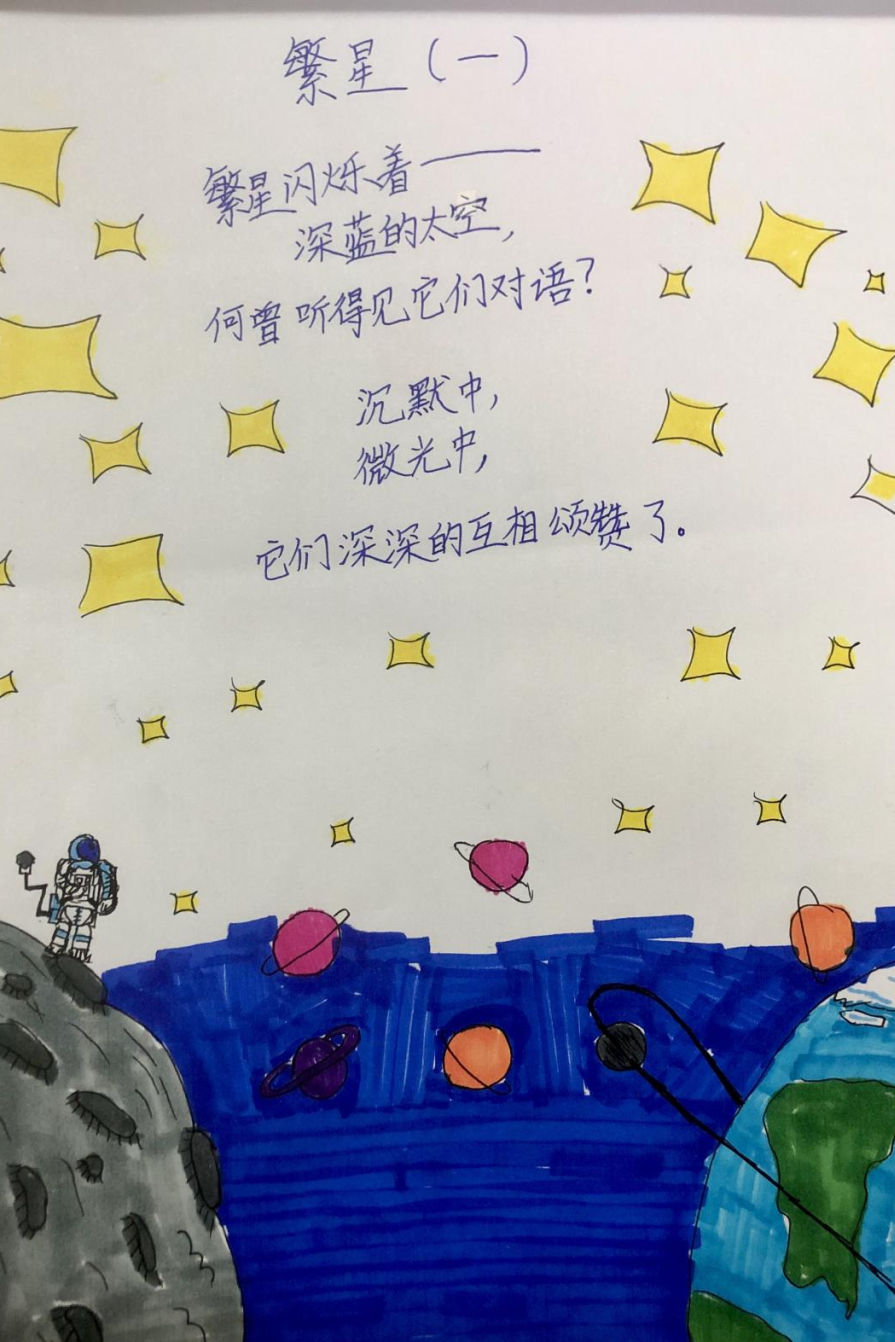 繁星（一）
繁星闪烁着——
深蓝的太空，
何曾听得见它们对语？
沉默中，
微光中，
它们深深的互相颂赞了。